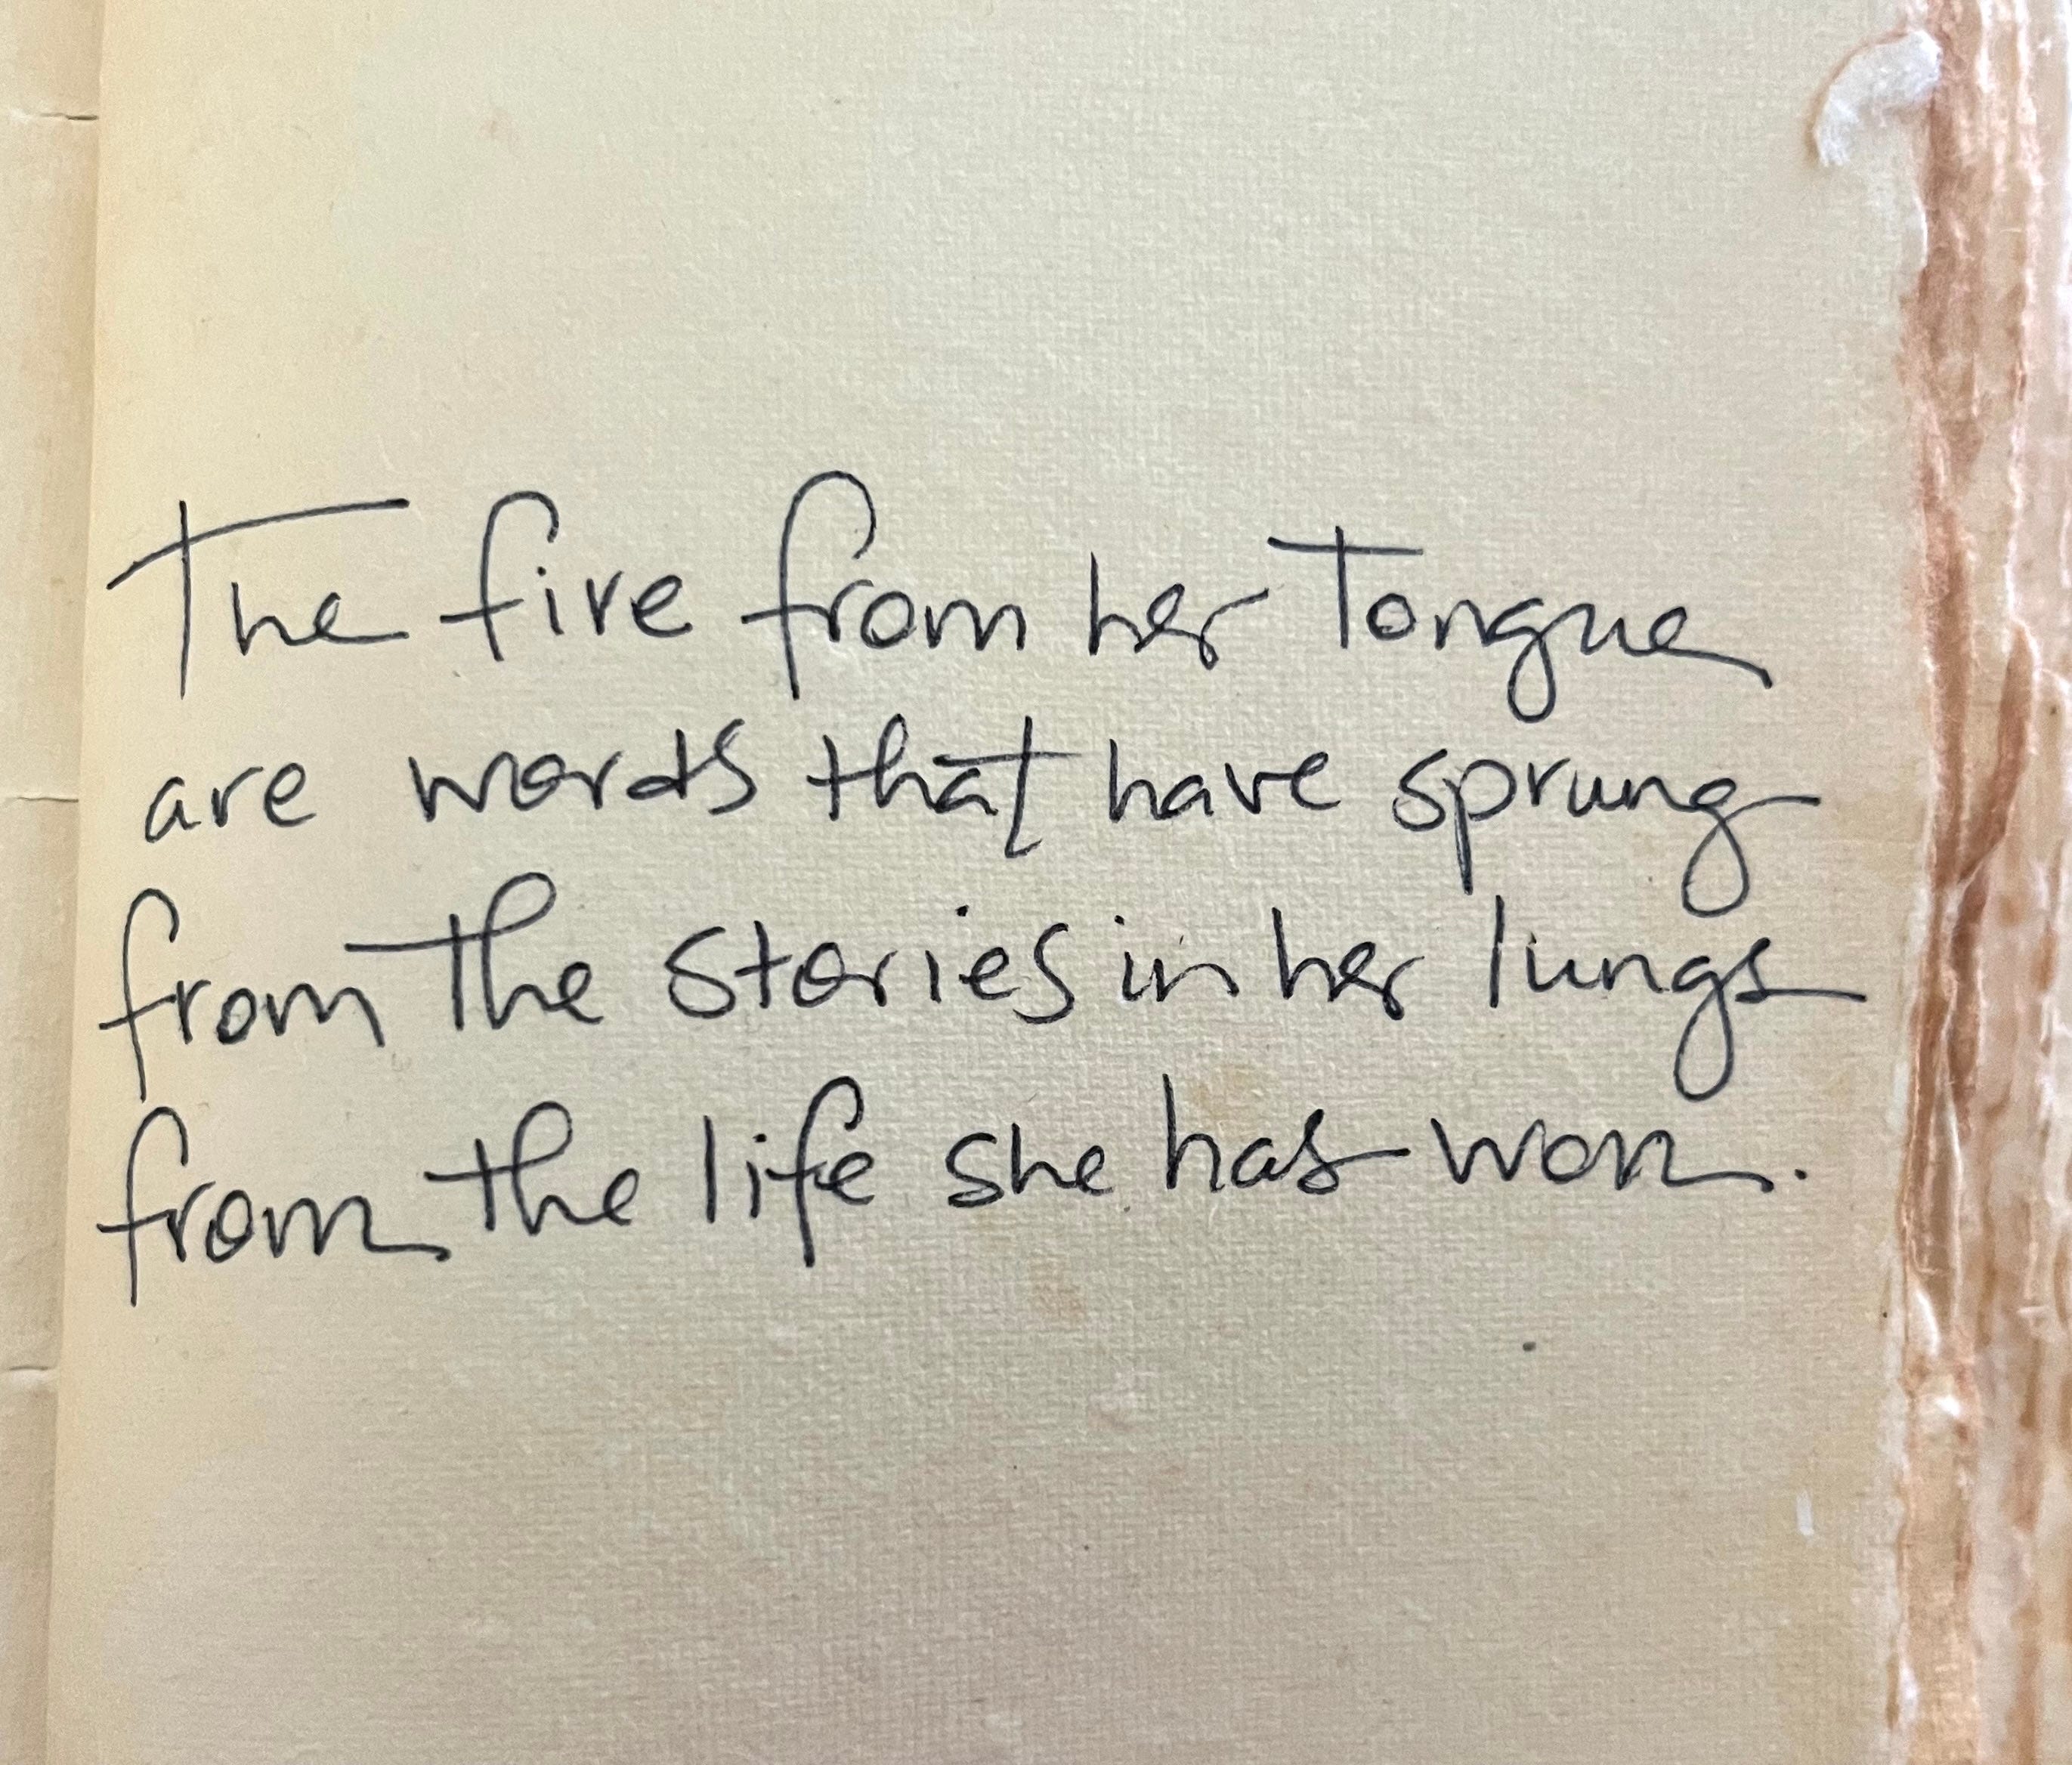 The fire from her Tongue
are words that have sprung
from the stories in her lungs
from the life she has won.